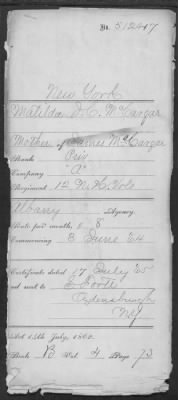 No. 51247
New York
Matilda D. C. McCargar
Mother of James McCargar
Rank Priv
Company "A"
Regiment 12 N.H. Vols
Albany Agency.
Rate per month, $ 8
Commencing 3 June '64
Certificate dated 17 July '65
and sent to
Ogdensburgh
N.Y.
Act 14th July, 1862.
Book B Vol 4 Page 72